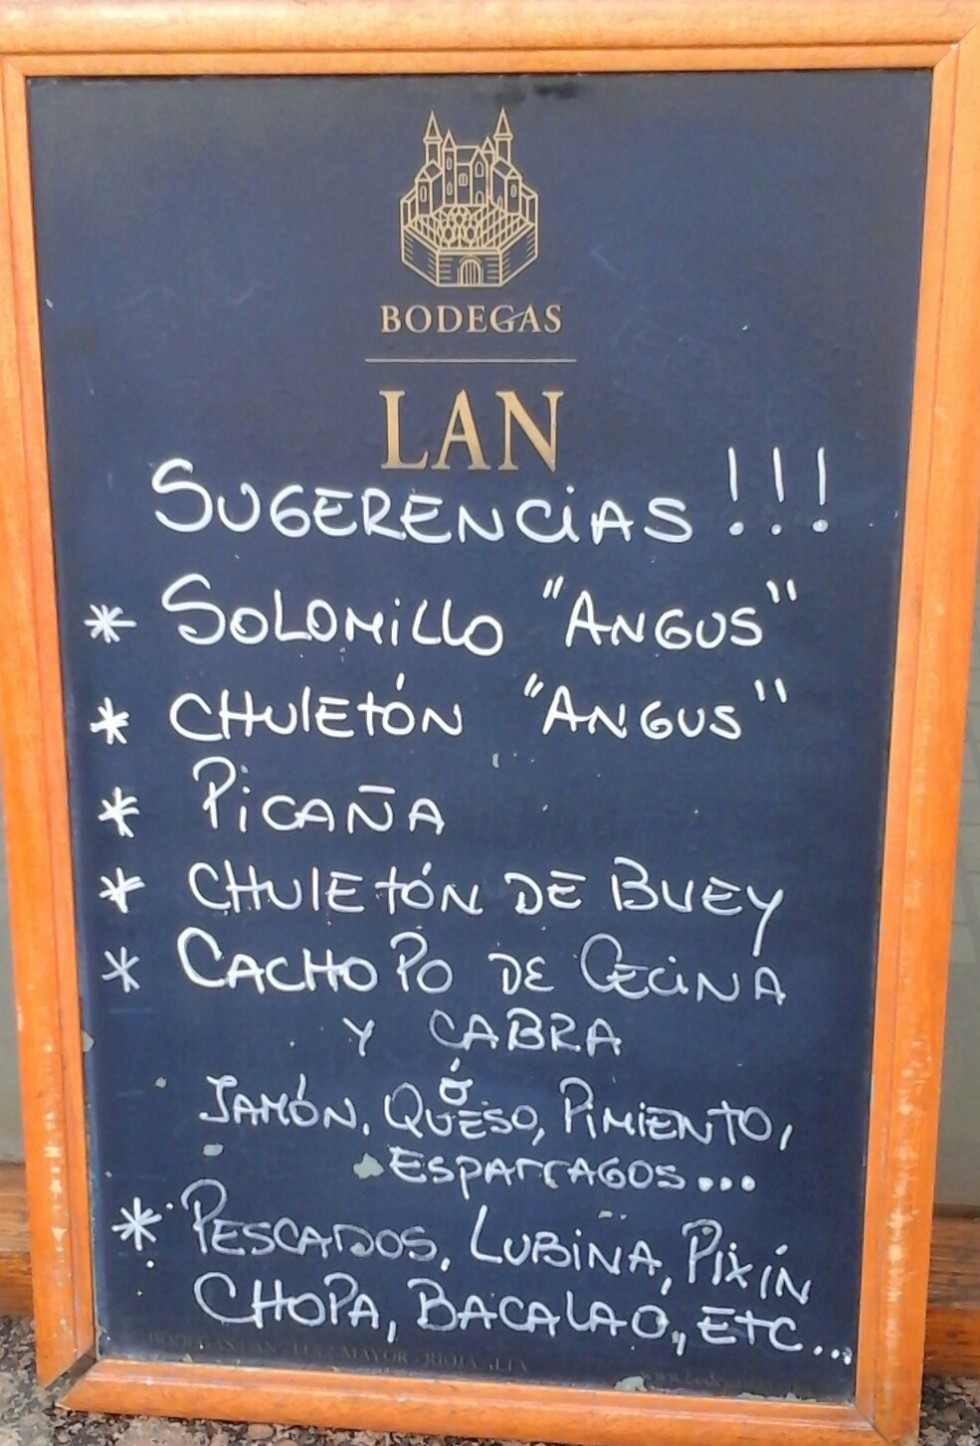 BODEGAS
LAN
SUGERENCIAS !!!
* SOLOMILLO "ANGUS"
* CHULETÓN "ANGUS"
* PICAÑA
* CHULETÓN DE BUEY
* CACHOPO DE CECINA
Y CABRA
Ó
JAMÓN, QUESO, PIMIENTO,
ESPARRAGOS...
* PESCADOS, LUBINA, PIXÍN
CHOPA, BACALAO, ETC...
BODEGAS LAN MAYOR RIOJA